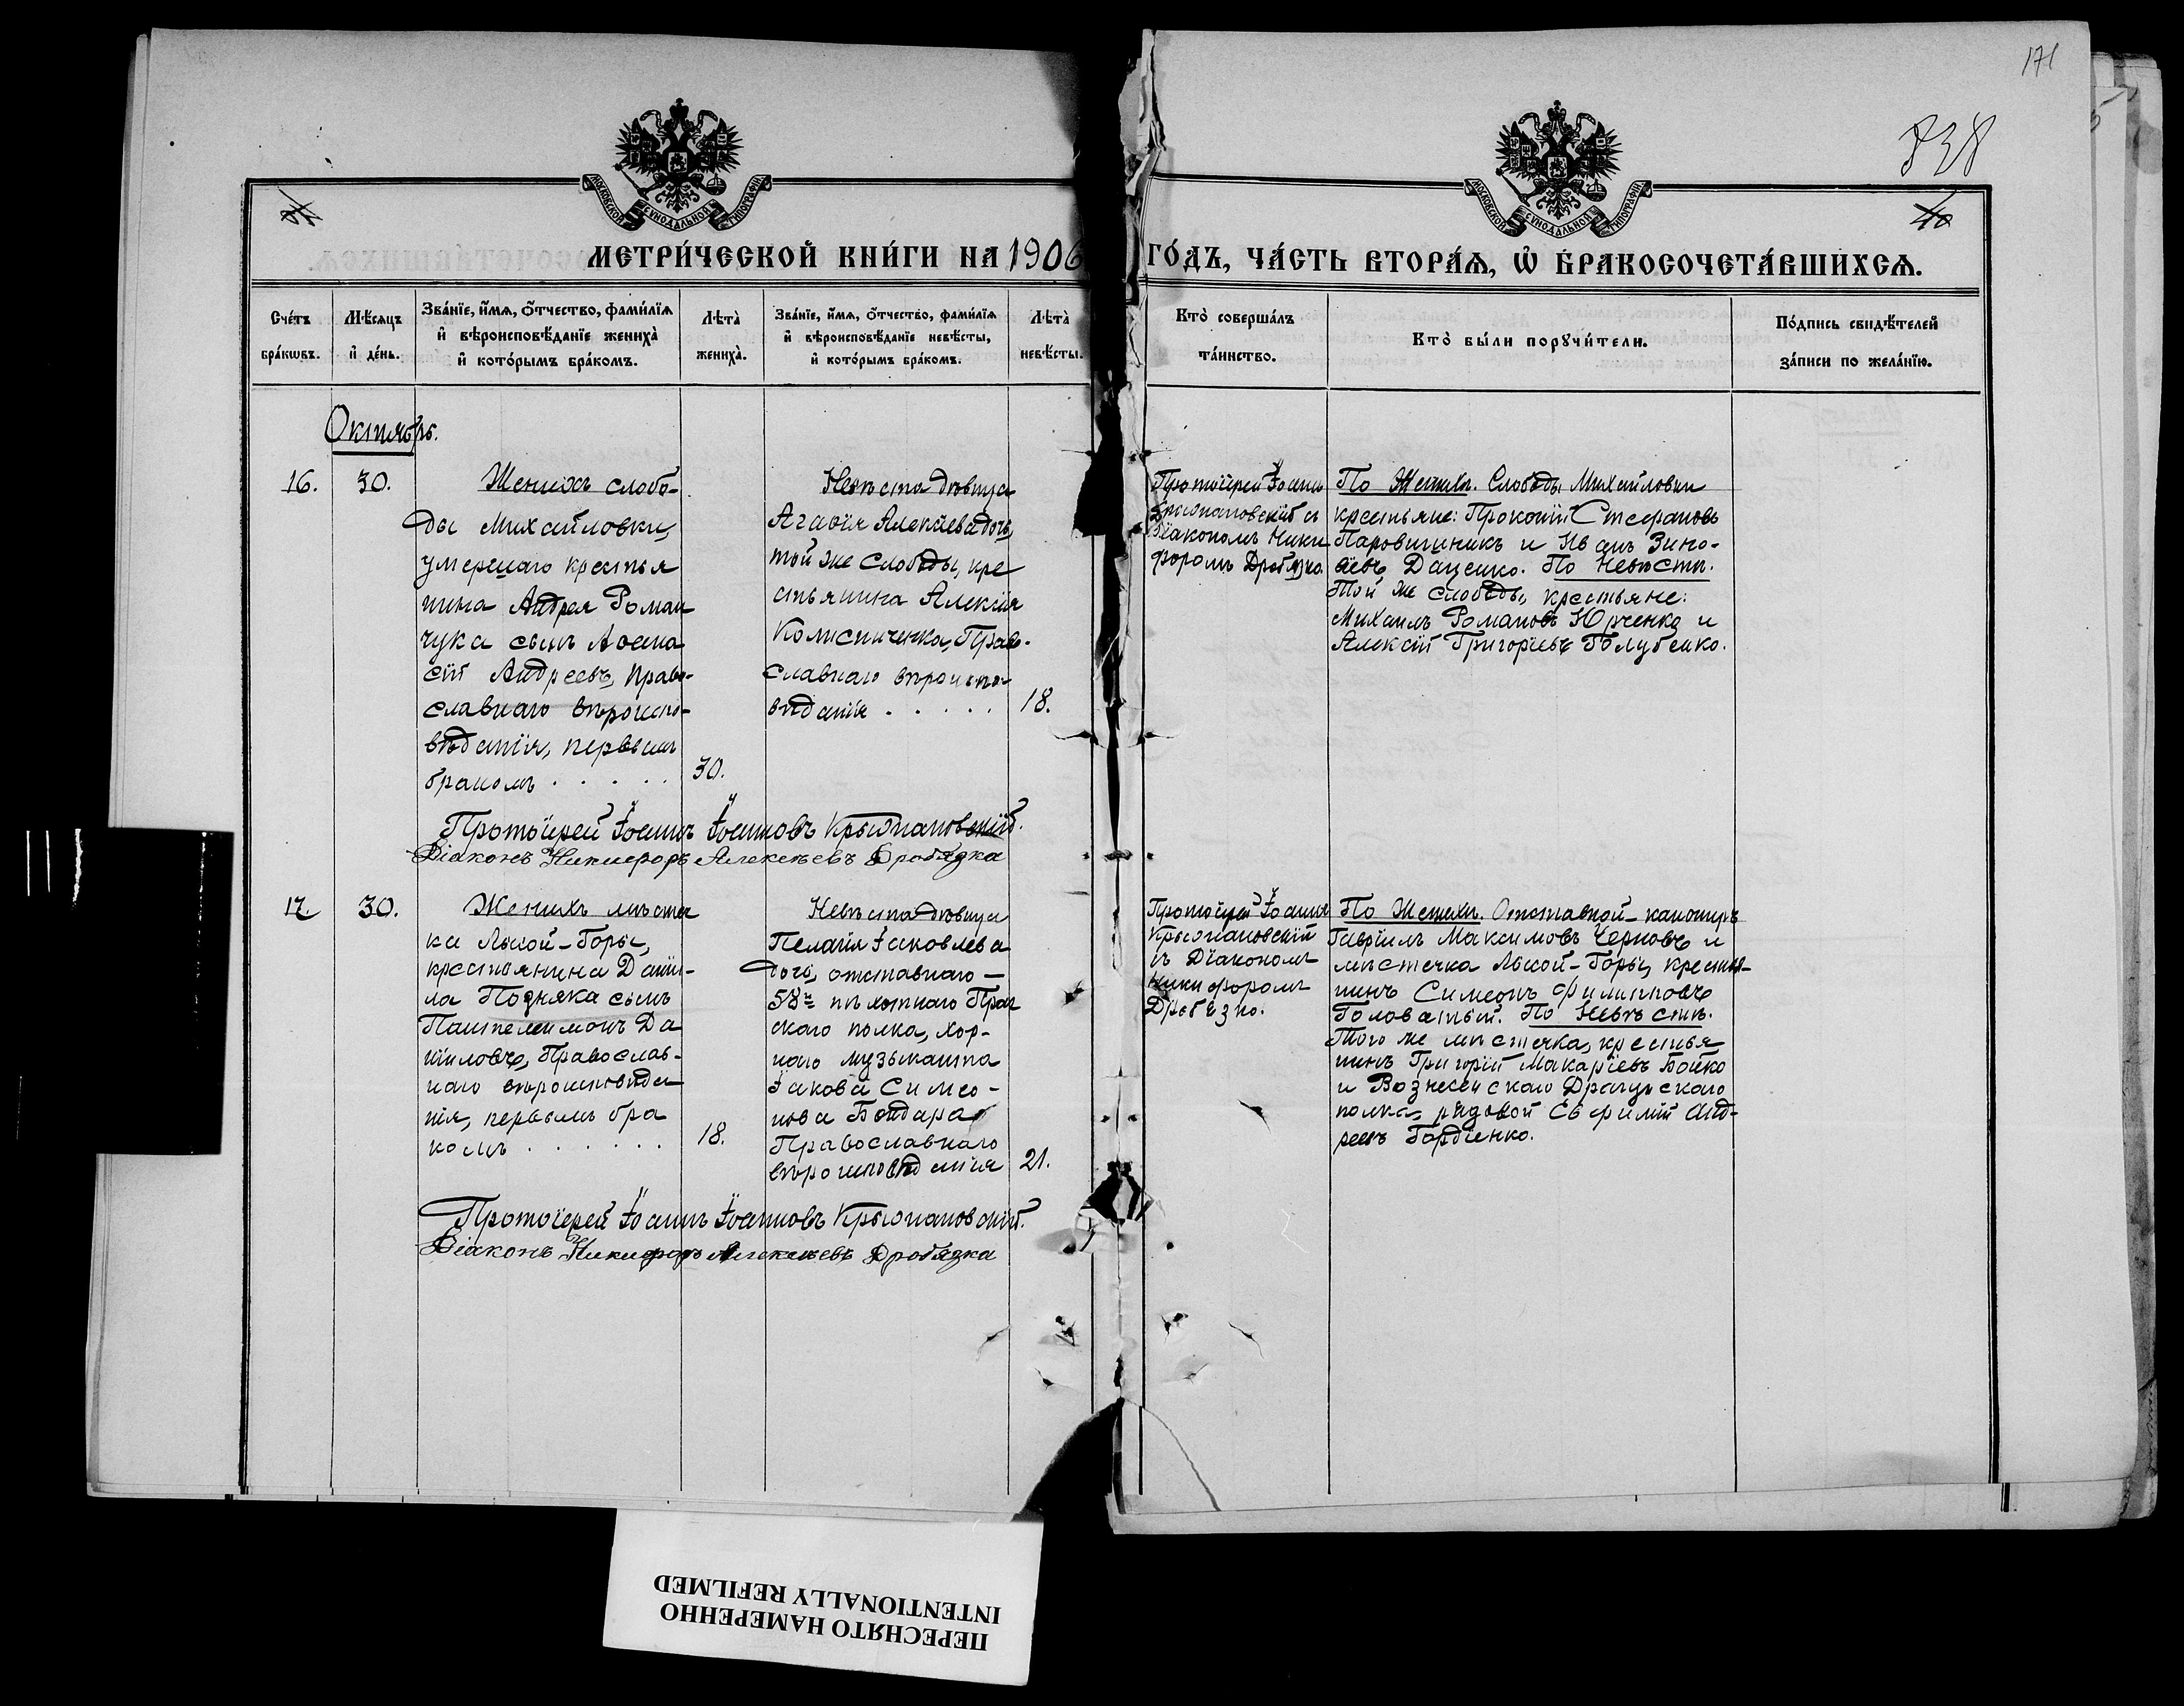 171
838
МОСКОВСКОЙ СѴНОДАЛЬНОЙ ТИПОГРАФІИ
МОСКОВСКОЙ СѴНОДАЛЬНОЙ ТИПОГРАФІИ
40
МЕТРИ́ЧЕСКОЙ КНИ́ГИ НА 1906
ГО́ДЪ, ЧА́СТЬ ВТОРА́Ѧ, Ѡ҆ БРАКОСОЧЕТА́ВШИХСѦ.
Сче́тъ бра́кѡвъ.
Мѣ́сяцъ и҆ де́нь.
Зва́нїе, и҆́мѧ, о҆́тчество, фами́лїѧ
и҆ вѣроисповѣ́данїе жениха̀
и҆ кото́рымъ бра́комъ.
Лѣта̀ жениха̀.
Зва́нїе, и҆́мѧ, о҆́тчество, фами́лїѧ
и҆ вѣроисповѣ́данїе невѣ́сты,
и҆ кото́рымъ бра́комъ.
Лѣта̀ невѣ́сты.
Кто̀ соверша́лъ
та́инство.
Кто̀ бы́ли порꙋчи́тели.
По́дпись свидѣ́телей
за́писи по жела́нїю.
Октябрь.
16.
30.
Женихъ слобо-
ды Михайловки,
умершаго крестья
нина Андрея Роман
чука сынъ Аѳана
сій Андреевъ, право-
славнаго вѣроиспо-
вѣданія, первымъ
бракомъ . . . . .
30.
Невѣста дѣвица
Агаѳія Алексіева дочь,
той же слободы, кре
стьянина Алексія
Колисниченка, Право-
славнаго вѣроиспо-
вѣданія . . . . .
18.
Протоіерей Іоаннъ
Крыжановскій съ
Діакономъ Ники
форомъ Дробязко.
По Женихѣ. Слободы Михайловки
крестьяне: Прокопій Стефановъ
Паровишникъ и Иванъ Зино-
віевъ Даценко. По Невѣстѣ.
Той же слободы, крестьяне:
Михаилъ Романовъ Юрченко и
Алексій Григоріевъ Голубенко.
Протоіерей Іоаннъ Іоанновъ Крыжановскій.
Діаконъ Никифоръ Алексѣевъ Дробязка
17.
30.
Женихъ мѣстеч
ка Лысой-Горы,
крестьянина Даніи-
ла Позняка сынъ
Пантелеимонъ Да
ніиловъ, Православ-
наго вѣроисповѣда
нія, первымъ бра
комъ . . . . . .
18.
Невѣста дѣвица
Пелагія Іаковлева
дочь, отставнаго
58го пѣхотнаго Праг
скаго полка, хор-
наго музыканта
Іакова Симео-
нова Бондаря
Православнаго
вѣроисповѣданія
21.
Протоіерей Іоаннъ
Крыжановскій
съ Діакономъ
Никифоромъ
Дробязко.
По Женихѣ. Отставной-канониръ
Гавріилъ Максимовъ Черновъ и
мѣстечка Лысой-Горы, крестья-
нинъ Симеонъ Филипповъ
Головатый. По Невѣстѣ.
Того же мѣстечка, крестья
нинъ Григорій Макаріевъ Бойко
и Вознесенскаго Драгунскаго
полка, рядовой Евфимій Анд-
реевъ Гордіенко.
Протоіерей Іоаннъ Іоанновъ Крыжановскій.
Діаконъ Никифоръ Алексѣевъ Дробязка
ПЕРЕСНЯТО НАМЕРЕННО
INTENTIONALLY REFILMED